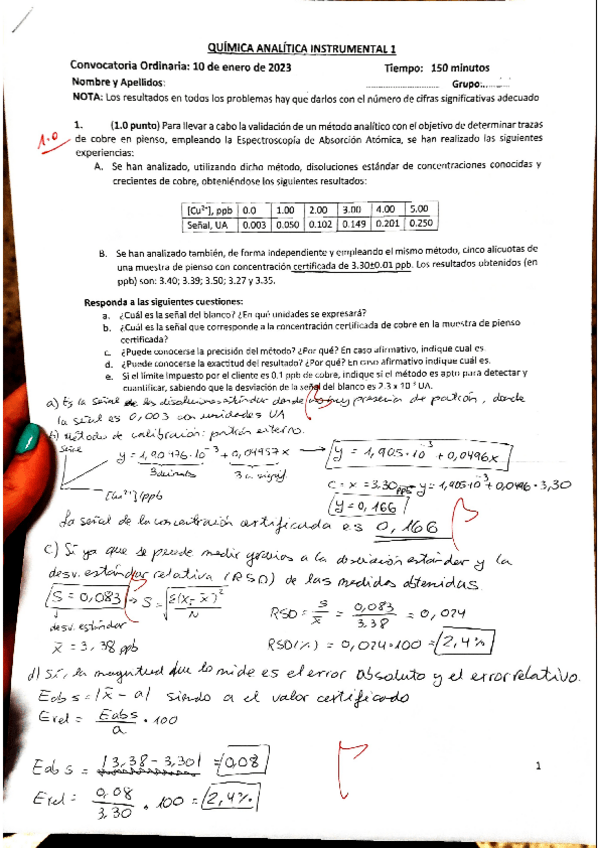 QUÍMICA ANALÍTICA INSTRUMENTAL 1
Convocatoria Ordinaria: 10 de enero de 2023 Tiempo: 150 minutos
Nombre y Apellidos: Grupo:......
NOTA: Los resultados en todos los problemas hay que darlos con el número de cifras significativas adecuado
1.0
1. (1.0 punto) Para llevar a cabo la validación de un método analítico con el objetivo de determinar trazas
de cobre en pienso, empleando la Espectroscopía de Absorción Atómica, se han realizado las siguientes
experiencias:
A. Se han analizado, utilizando dicho método, disoluciones estándar de concentraciones conocidas y
crecientes de cobre, obteniéndose los siguientes resultados:
[Cu²⁺], ppb 0.0 1.00 2.00 3.00 4.00 5.00
Señal, UA 0.003 0.050 0.102 0.149 0.201 0.250
B. Se han analizado también, de forma independiente y empleando el mismo método, cinco alícuotas de
una muestra de pienso con concentración certificada de 3.30±0.01 ppb. Los resultados obtenidos (en
ppb) son: 3.40; 3.39; 3.50; 3.27 y 3.35.
Responda a las siguientes cuestiones:
a. ¿Cuál es la señal del blanco? ¿En qué unidades se expresará?
b. ¿Cuál es la señal que corresponde a la concentración certificada de cobre en la muestra de pienso
certificada?
c. ¿Puede conocerse la precisión del método? ¿Por qué? En caso afirmativo, indique cual es.
d. ¿Puede conocerse la exactitud del resultado? ¿Por qué? En caso afirmativo indique cuál es.
e. Si el límite impuesto por el cliente es 0.1 ppb de cobre, indique si el método es apto para detectar y
cuantificar, sabiendo que la desviación de la señal del blanco es 2.3 x 10⁻³ UA.
a) Es la señal de las disoluciones estándar donde no hay presencia de patrón, donde
la señal es 0,003 con unidades UA
b) Método de calibración: patrón externo.
Señal
y = 1,90476·10⁻³ + 0,04957x → y = 1,905·10⁻³ + 0,0496x
3 decimales 3 c. signif.
[Cu²⁺]/ppb
C = x = 3,30 ppb → y = 1,905·10⁻³ + 0,0496 · 3,30
y = 0,166
La señal de la concentración certificada es 0,166
c) Sí ya que se puede medir gracias a la desviación estándar y la
desv. estándar relativa (RSD) de las medidas obtenidas.
S = 0,083 → S = √Σ(xᵢ - x̄)²/N
desv. estándar
RSD = S/x̄ = 0,083/3,38 = 0,024
x̄ = 3,38 ppb
RSD(%) = 0,024·100 = 2,4%
d) Sí, la magnitud que lo mide es el error absoluto y el error relativo.
Eabs = |x̄ - a| siendo a el valor certificado
Erel = Eabs/a · 100
Eabs = |3,38 - 3,30| = 0,08
Erel = 0,08/3,30 · 100 = 2,4%
1